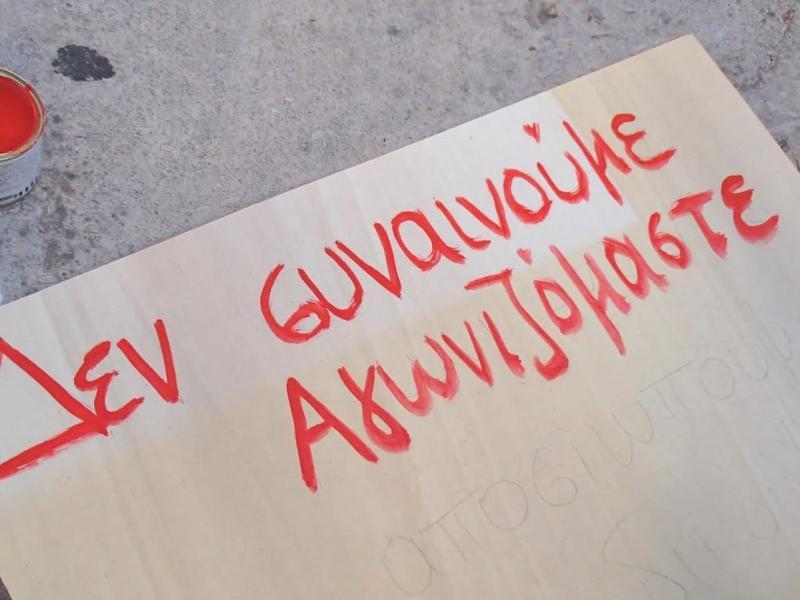 Δεν συναινούμε
Αγωνιζόμαστε
αποσιωπουμ